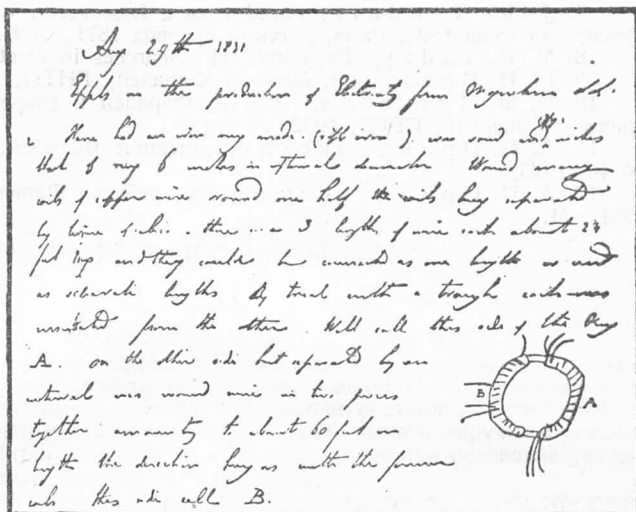 Aug 29th 1831
Expts on the production of Electricity from Magnetism etc.
Have had an iron ring made (soft iron), iron round and
thick & ring 6 inches in external diameter Wound many
coils of copper wire round one half the coils being separated
by twine & calico - there were 3 lengths of wire each about 24
feet long and they could be connected as one length or used
as separate lengths By trial with a trough each was
insulated from the other. Will call this side of the Ring
A. on the other side but separated by an
interval was wound wire in two pieces
together amounting to about 60 feet in
length the direction being as with the former
coils this side call B.
B
A